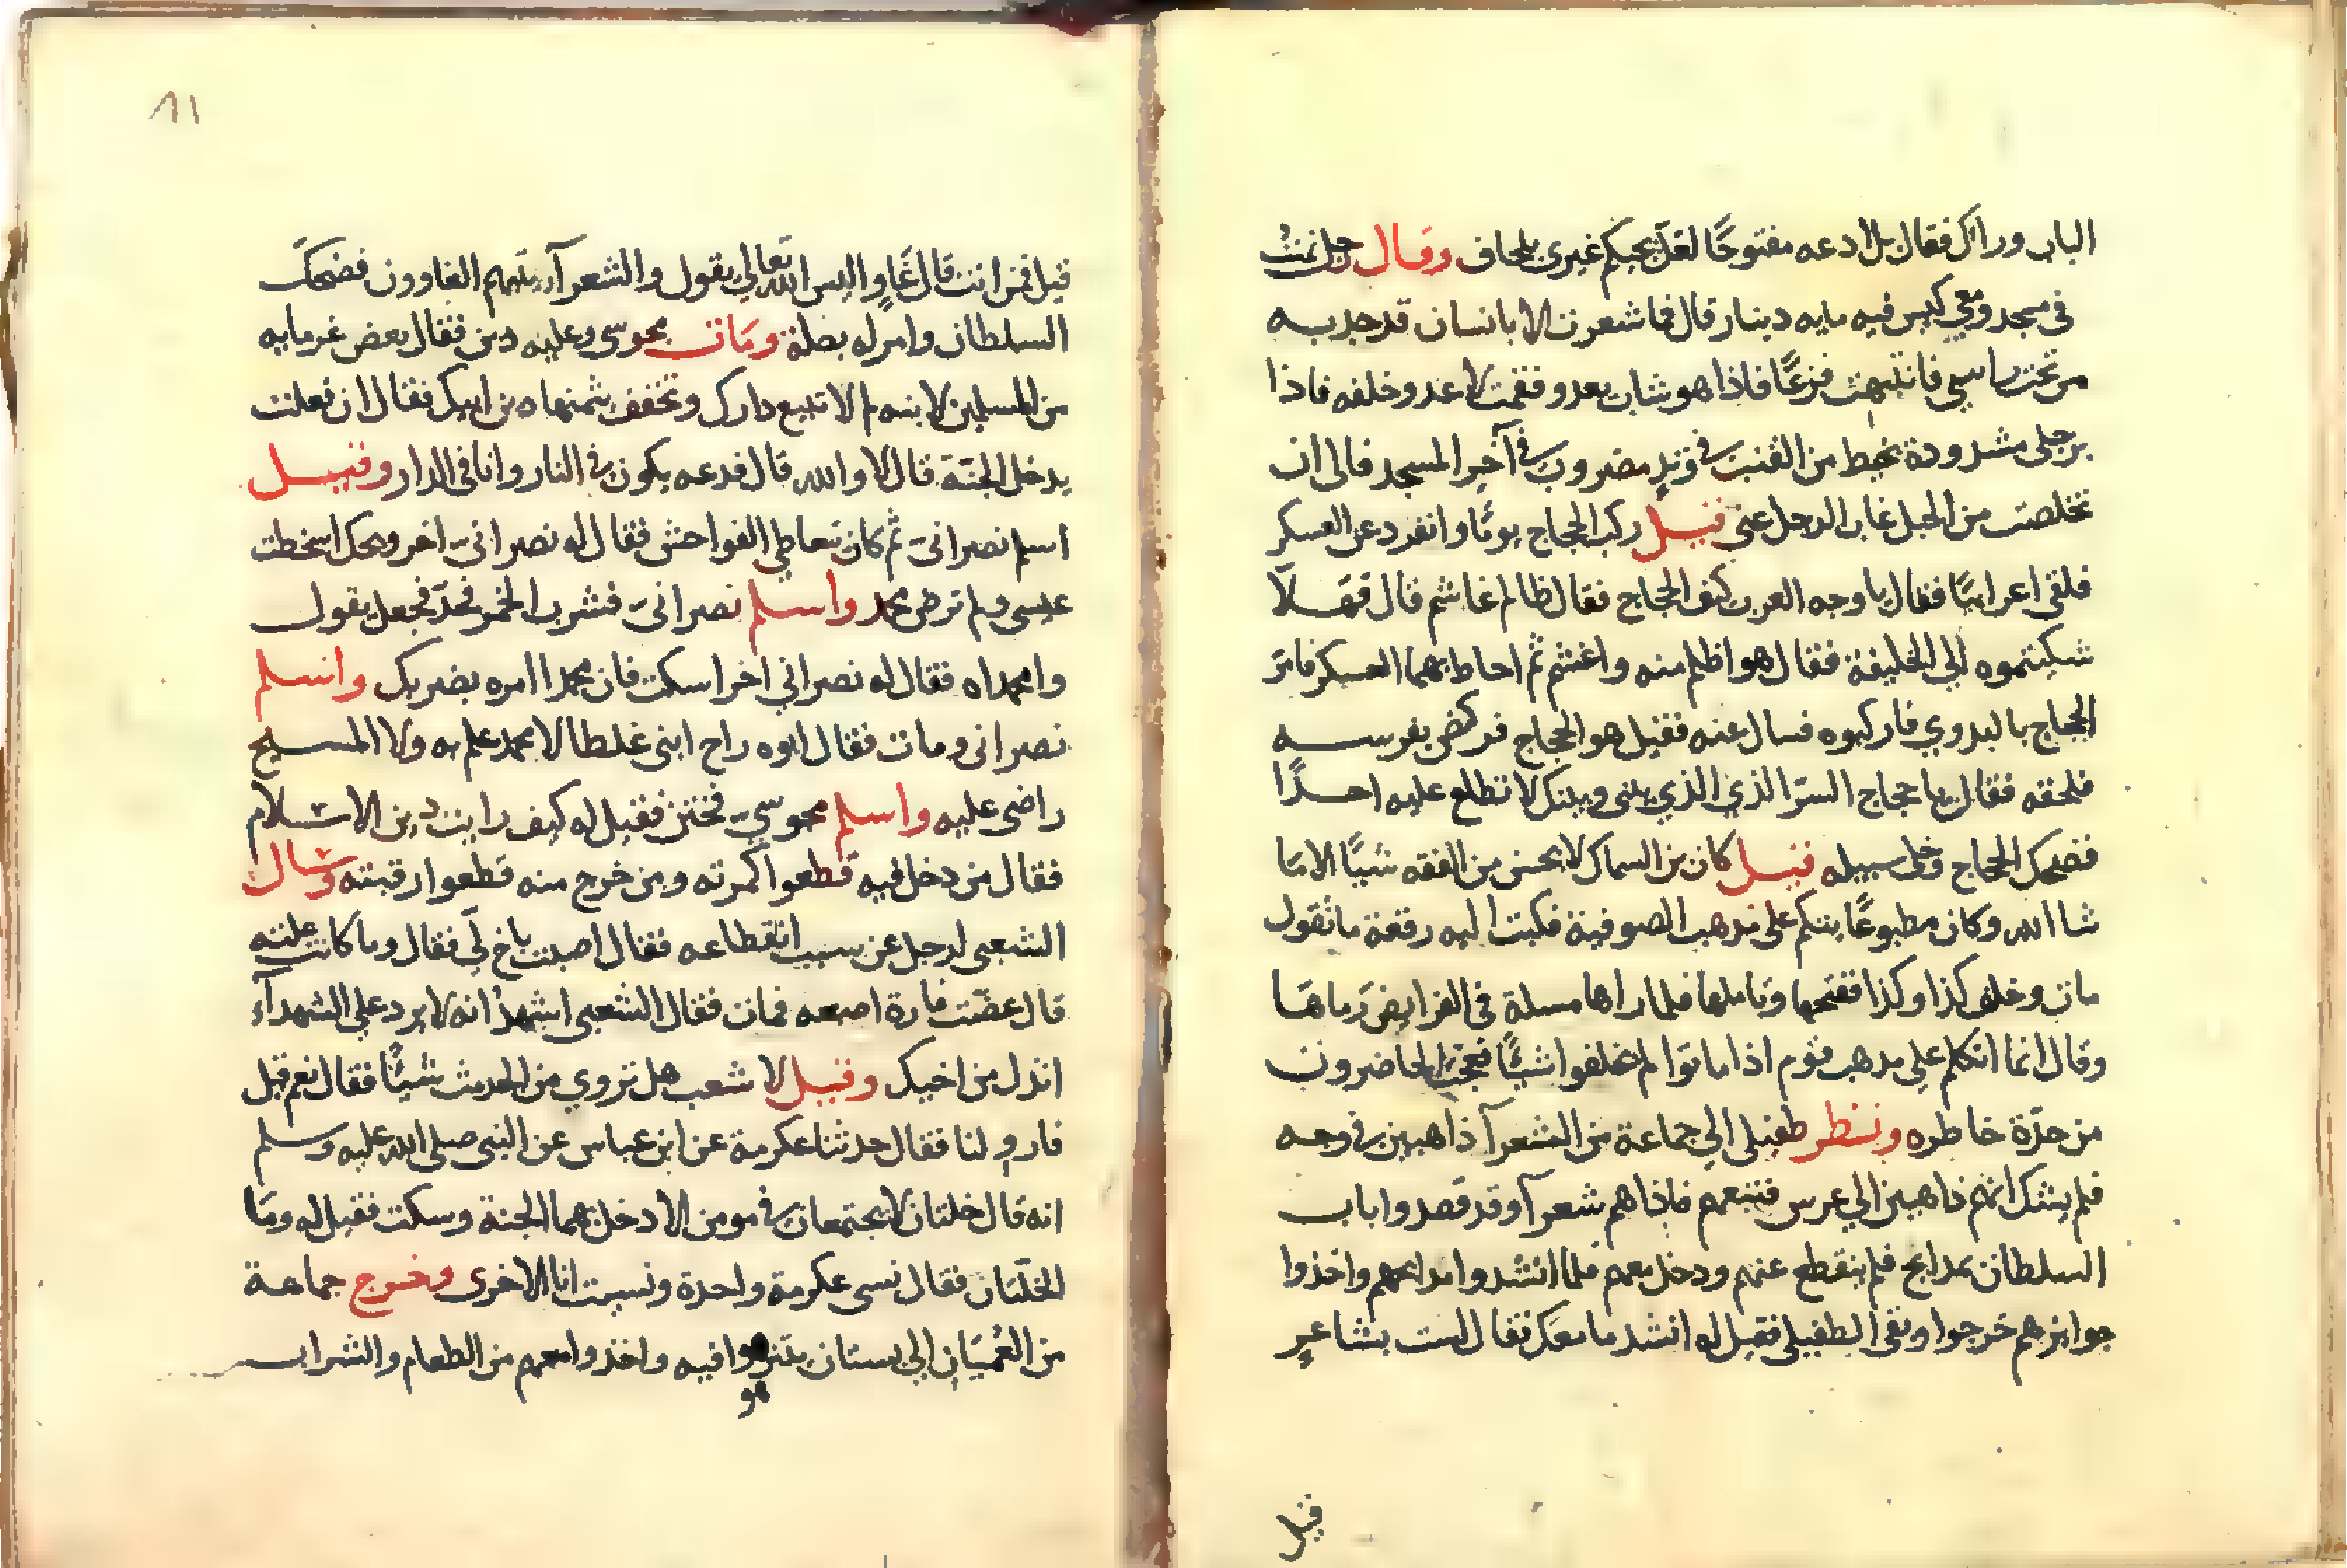 الباب وراك فقال بل ادعه مفتوحًا لعل يجيكم غيرى بلحاف وقال رجل نمتُ
في مسجد ومعي كيس فيه مايه دينار قال فما شعرت الا بانسان قد جذبه
من تحت راسي فانتبهت فزعًا فاذا هو شاب يعدو فقمت لاعدو خلفه فاذا
برجلى مشدودة بخيط من القنب في وتدٍ مضروب في آخر المسجد فالى ان
تخلصت من الحبل غاب الرجل عني قيل ركب الحجاج يومًا وانفرد عن العسكر
فلقى اعرابيًا فقال يا وجه العرب كيف الحجاج فقال ظالم غاشم قال فهلّا
شكيتموه الي الخليفة فقال هو اظلم منه واغشم ثم احاط بهما العسكر فامر
الحجاج بالبدوي فاركبوه فسال عنه فقيل هو الحجاج فركض بفرسه
فلحقه فقال يا حجاج السرّ الذي الذي بيني وبينك لا تطلع عليه احدًا
فضحك الحجاج وخلى سبيله قيل كان بن السماك لا يحسن من الفقه شيًا الا ما
شا الله وكان مطبوعًا يتكلم على مذهب الصوفية فكتب اليه رقعة ما تقول
مات وخلف كذا وكذا ففتحها وتاملها فلما راها مسلة في الفرايض رماها
وقال انما اتكلم علي مذهب قوم اذا ماتوا لم يخلفوا شيًا فعجب الحاضرون
من حدّة خاطره ونظر طفيلى الي جماعة من الشعرآ ذاهبين في وجه
فلم يشك انهم ذاهبين الي عرس فتبعهم فاذا هم شعرآ وقد قصدوا باب
السلطان بمدايح فلم ينقطع عنهم ودخل معهم فلما انشدوا مدايحهم واخذوا
جوايزهم خرجوا وبقي الطفيلى فقيل له انشد ما معك فقال لست بشاعرٍ
قيل
٨١
قيل فمن انت قال غَاوٍ اليس الله تعالي يقول والشعرآ يتبعهم الغاوون فضحك
السلطان وامر له بصلة ومات مجوسي وعليه دين فقال بعض غرمايه
من المسلمين لابنه لم لا تبيع دارك وتخفف بثمنها من ابيك فقال ان فعلت
يدخل الجنة قال لا والله قال فدعه يكون في النار وانا في الدار وقيل
اسلم نصرانى ثم كان يتعاطي الفواحش فقال له نصرانى اخر ويحك اسخطت
عيسى ولم ترض محمد واسلم نصرانى فشرب الخمر فحدّ فجعل يقول
وامحمداه فقال له نصراني اخر اسكت فان محمدا امره بضربك واسلم
نصرانى ومات فقال ابوه راح ابني غلطا لا محمد علم به ولا المسيح
راضى عليه واسلم مجوسي فختن فقيل له كيف رايت دين الاسلام
فقال من دخل فيه قطعوا كمرته ومن خرج منه قطعوا رقبته وسال
الشعبى لرجل عن سبب انقطاعه فقال اصبت باخٍ لى فقال وما كانت علته
قال عضّت فارة اصبعه فمات فقال الشعبى اشهدُ انه لا يرد علي الشهدآء
انذل من اخيك وقيل لاشعب هل تروي من الحديث شيًا فقال نعم قيل
فاروِ لنا فقال حدثنا عكرمة عن ابن عباس عن النبى صلى الله عليه وسلم
انه قال خلتان لا يجتمعان في مومن الا دخل بهما الجنة وسكت فقيل له وما
الخلّتان فقال نسى عكرمة واحدة ونسيت انا الاخرى وخرج جماعة
من العُميَان الي بستان يتنزهوا فيه واخذوا معهم من الطعام والشراب
هو